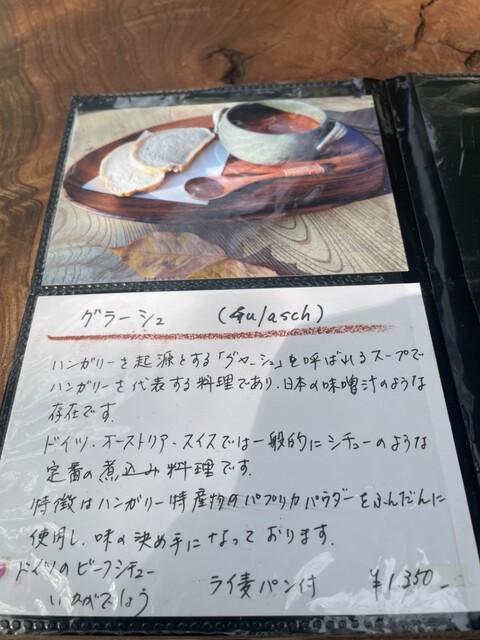 グラーシュ (Gulasch)
ハンガリーを起源とする「グヤーシュ」と呼ばれるスープで
ハンガリーを代表する料理であり、日本の味噌汁のような
存在です。
ドイツ、オーストリア、スイスでは一般的にシチューのような
定番の煮込み料理です。
特徴はハンガリー特産物のパプリカパウダーをふんだんに
使用し、味の決め手になっております。
ドイツのビーフシチュー
いかがでしょう
ライ麦パン付 ¥1,350-